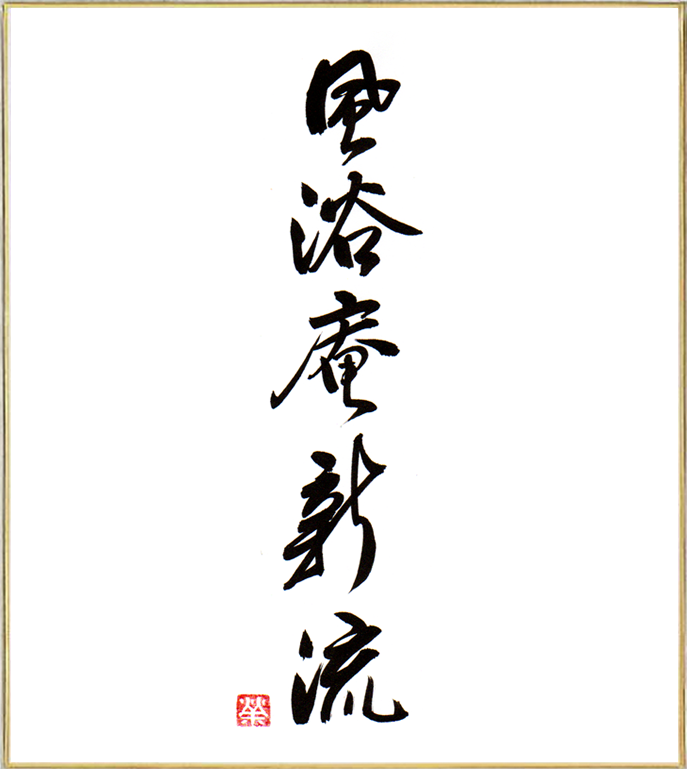 風浴庵新流